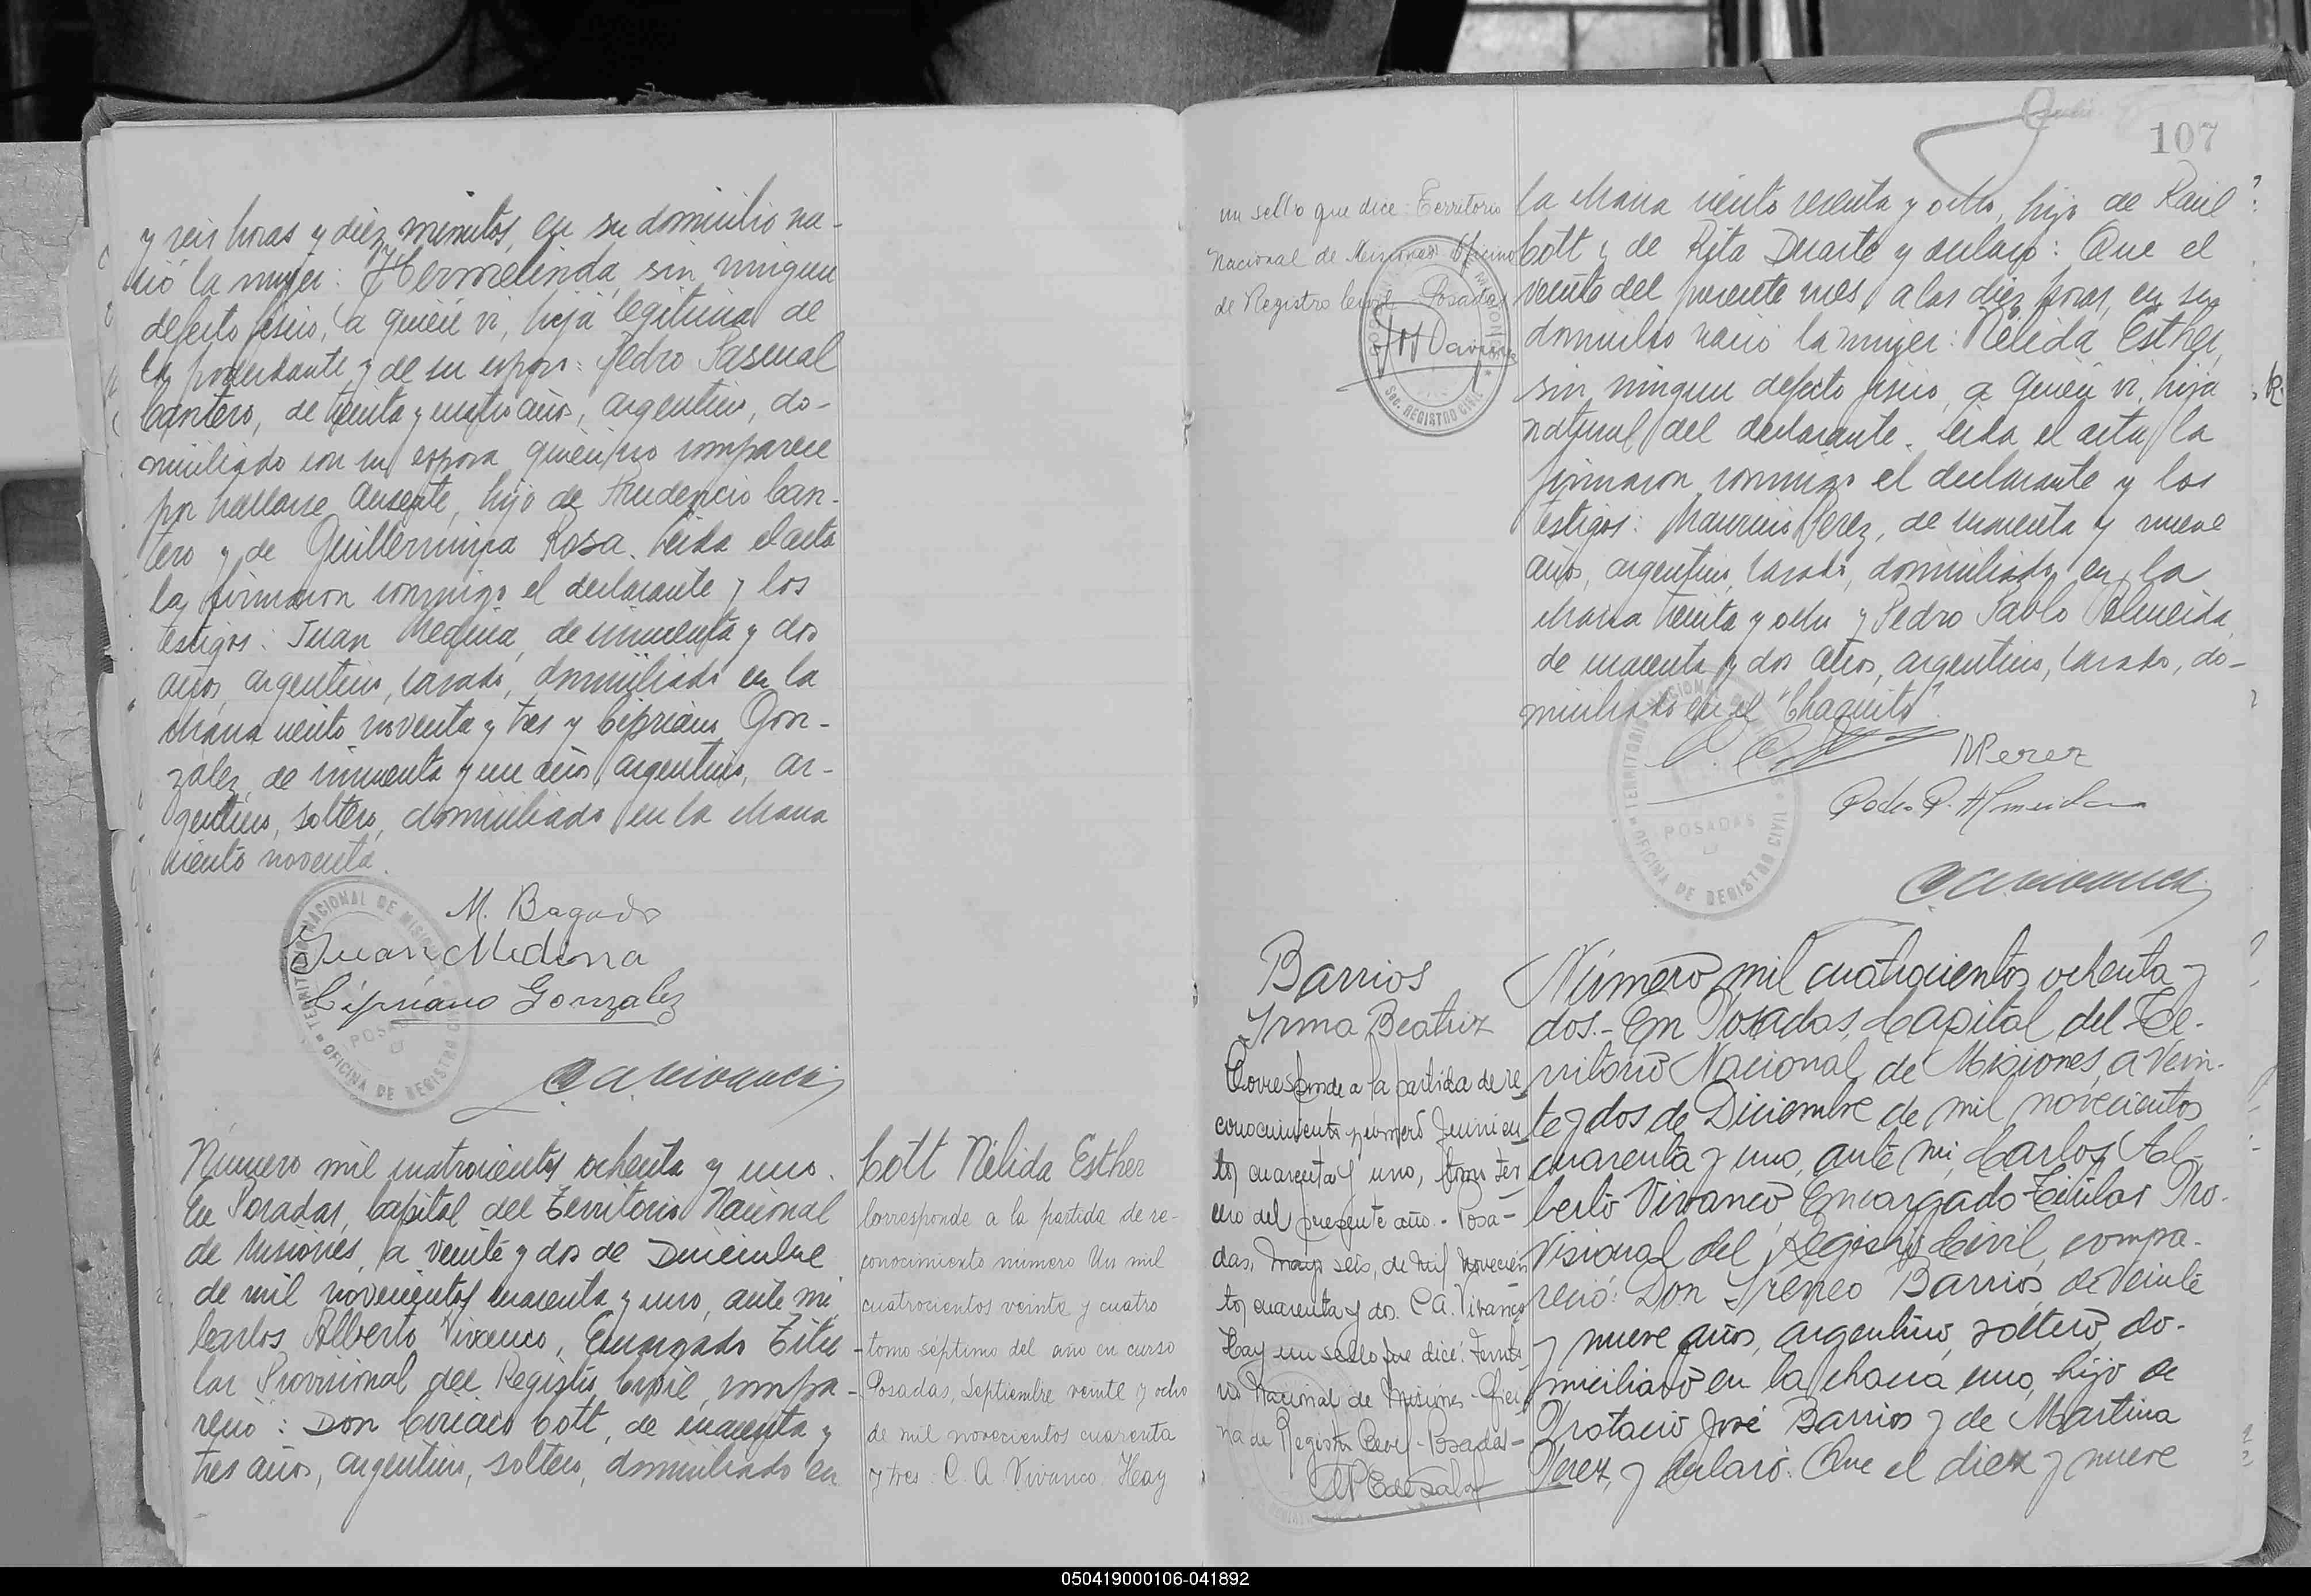 y seis horas y diez minutos, en su domicilio na-
ció la mujer: Hermelinda, sin ningun
defecto fisico, a quién vi, hija legitima de
la poderdante y de su esposo: Pedro Pascual
Cantero, de treinta y cuatro años, argentino, do-
miciliado con su esposa quién no comparece
por hallarse ausente, hijo de Prudencio Can-
tero y de Guillermina Rosa. Leida el acta
la firmaron conmigo el declarante y los
testigos: Juan Medina, de cincuenta y dos
años, argentino, casado, domiciliado en la
chacra ciento noventa y tres y Cipriano Gon-
zález, de cincuenta y un años, argentino, ar-
gentino, soltero, domiciliado en la chacra
ciento noventa.
M. Bagado
Juan Medina
Cipriano Gonzalez
TERRITORIO NACIONAL DE MISIONES
POSADAS
OFICINA DE REGISTRO CIVIL
C A Vivanco
Número mil cuatrocientos ochenta y uno.
En Posadas, Capital del Territorio Nacional
de Misiones, a veinte y dos de Diciembre
de mil novecientos cuarenta y uno, ante mi
Carlos Alberto Vivanco, Encargado Titu
lar Provisional del Registro Civil, compa-
reció: Don Ciriaco Cott, de cuarenta y
tres años, argentino, soltero, domiciliado en
Cott Nélida Esther
Corresponde a la partida de re-
conocimiento número Un mil
cuatrocientos veinte y cuatro
tomo séptimo del año en curso
Posadas, Septiembre veinte y ocho
de mil novecientos cuarenta
y tres: C. A. Vivanco. Heay
107
un sello que dice Territorio
Nacional de Misiones Oficina
de Registro Civil Posadas
SEC. REGISTRO CIVIL
la chacra ciento sesenta y ocho, hijo de Raúl
Cott y de Rita Duarte y declaró: Que el
veinte del presente mes, a las diez horas, en su
domicilio nació la mujer: Nélida Esther,
sin ningun defecto fisico, a quién vi, hija
natural del declarante. Leida el acta, la
firmaron conmigo el declarante y los
testigos: Mauricio Perez, de cuarenta y nueve
años, argentino, casado, domiciliado en la
chacra treinta y ocho y Pedro Pablo Almeida,
de cuarenta y dos años, argentino, casado, do-
miciliado en el "Chaquito".
C. Cott
M Perez
Pedro P. Almeida
TERRITORIO NACIONAL DE
POSADAS
OFICINA DE REGISTRO CIVIL
C A Vivanco
Barrios
Irma Beatriz
Corresponde a la partida de re
conocimiento número Quinien
tos cuarenta y uno, tomo ter
cero del presente año. - Posa-
das, mayo seis, de mil novecien
tos cuarenta y dos. C A. Vivanco
Hay un sello que dice: Territo
rio Nacional de Misiones - Ofici
na de Registro Civil - Posadas -
Número mil cuatrocientos ochenta y
dos.- En Posadas, Capital del Te-
rritorio Nacional de Misiones, a vein-
te y dos de Diciembre de mil novecientos
cuarenta y uno, ante mi, Carlos Al-
berto Vivanco, Encargado Titular Pro-
visional del Registro Civil, compa-
reció: Don Ireneo Barrios, de veinte
y nueve años, argentino, soltero, do-
miciliado en la chacra uno, hijo de
Protacio José Barrios y de Martina
Perez, y declaró: Que el diez y nueve
050419000106-041892